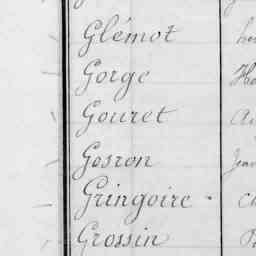 Glémot
Gorge
Gouret
Gosron
Gringoire
Grossin